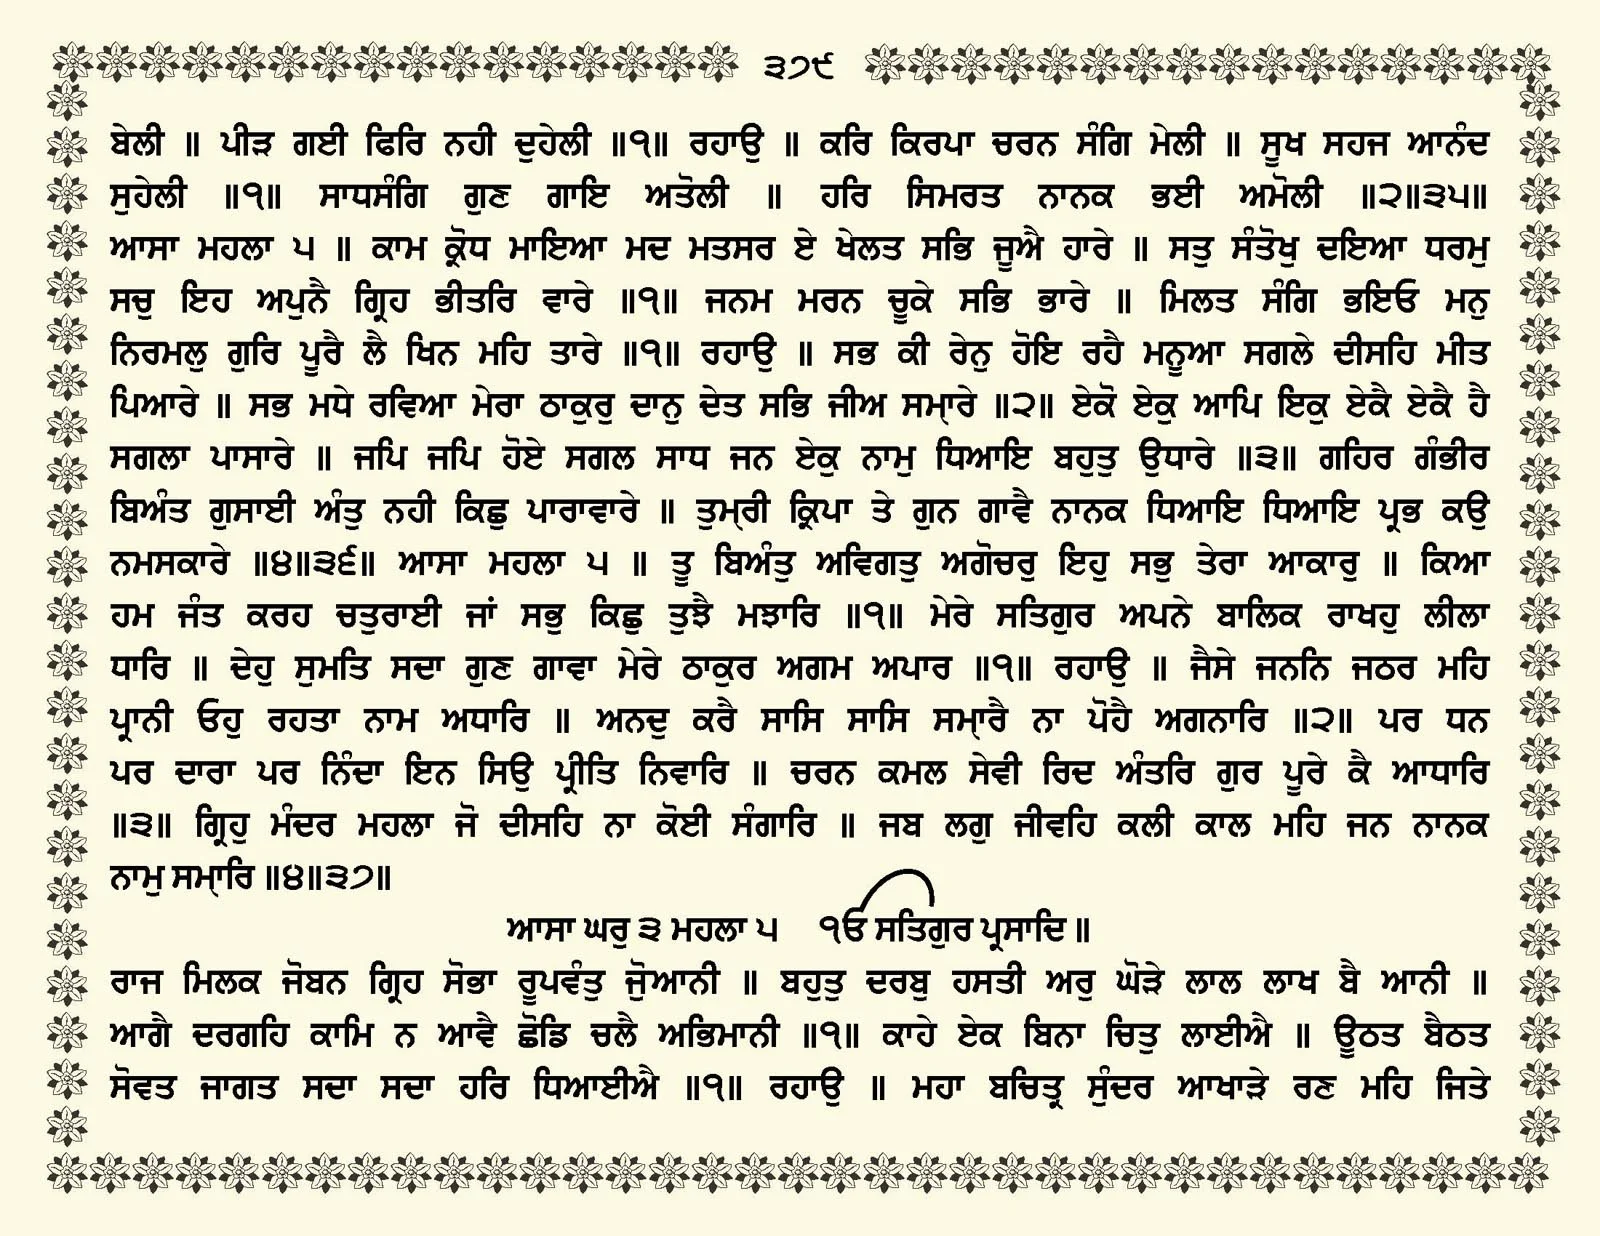 ੩੭੯
ਬੇਲੀ ॥ ਪੀੜ ਗਈ ਫਿਰਿ ਨਹੀ ਦੁਹੇਲੀ ॥੧॥ ਰਹਾਉ ॥ ਕਰਿ ਕਿਰਪਾ ਚਰਨ ਸੰਗਿ ਮੇਲੀ ॥ ਸੂਖ ਸਹਜ ਆਨੰਦ
ਸੁਹੇਲੀ ॥੧॥ ਸਾਧਸੰਗਿ ਗੁਣ ਗਾਇ ਅਤੋਲੀ ॥ ਹਰਿ ਸਿਮਰਤ ਨਾਨਕ ਭਈ ਅਮੋਲੀ ॥੨॥੩੫॥
ਆਸਾ ਮਹਲਾ ੫ ॥ ਕਾਮ ਕ੍ਰੋਧ ਮਾਇਆ ਮਦ ਮਤਸਰ ਏ ਖੇਲਤ ਸਭਿ ਜੂਐ ਹਾਰੇ ॥ ਸਤੁ ਸੰਤੋਖੁ ਦਇਆ ਧਰਮੁ
ਸਚੁ ਇਹ ਅਪੁਨੈ ਗ੍ਰਿਹ ਭੀਤਰਿ ਵਾਰੇ ॥੧॥ ਜਨਮ ਮਰਨ ਚੂਕੇ ਸਭਿ ਭਾਰੇ ॥ ਮਿਲਤ ਸੰਗਿ ਭਇਓ ਮਨੁ
ਨਿਰਮਲੁ ਗੁਰਿ ਪੂਰੈ ਲੈ ਖਿਨ ਮਹਿ ਤਾਰੇ ॥੧॥ ਰਹਾਉ ॥ ਸਭ ਕੀ ਰੇਨੁ ਹੋਇ ਰਹੈ ਮਨੂਆ ਸਗਲੇ ਦੀਸਹਿ ਮੀਤ
ਪਿਆਰੇ ॥ ਸਭ ਮਧੇ ਰਵਿਆ ਮੇਰਾ ਠਾਕੁਰੁ ਦਾਨੁ ਦੇਤ ਸਭਿ ਜੀਅ ਸਮ੍ਹਾਰੇ ॥੨॥ ਏਕੋ ਏਕੁ ਆਪਿ ਇਕੁ ਏਕੈ ਏਕੈ ਹੈ
ਸਗਲਾ ਪਾਸਾਰੇ ॥ ਜਪਿ ਜਪਿ ਹੋਏ ਸਗਲ ਸਾਧ ਜਨ ਏਕੁ ਨਾਮੁ ਧਿਆਇ ਬਹੁਤੁ ਉਧਾਰੇ ॥੩॥ ਗਹਿਰ ਗੰਭੀਰ
ਬਿਅੰਤ ਗੁਸਾਈ ਅੰਤੁ ਨਹੀ ਕਿਛੁ ਪਾਰਾਵਾਰੇ ॥ ਤੁਮ੍ਹਰੀ ਕ੍ਰਿਪਾ ਤੇ ਗੁਨ ਗਾਵੈ ਨਾਨਕ ਧਿਆਇ ਧਿਆਇ ਪ੍ਰਭ ਕਉ
ਨਮਸਕਾਰੇ ॥੪॥੩੬॥ ਆਸਾ ਮਹਲਾ ੫ ॥ ਤੂ ਬਿਅੰਤੁ ਅਵਿਗਤੁ ਅਗੋਚਰੁ ਇਹੁ ਸਭੁ ਤੇਰਾ ਆਕਾਰੁ ॥ ਕਿਆ
ਹਮ ਜੰਤ ਕਰਹ ਚਤੁਰਾਈ ਜਾਂ ਸਭੁ ਕਿਛੁ ਤੁਝੈ ਮਝਾਰਿ ॥੧॥ ਮੇਰੇ ਸਤਿਗੁਰ ਅਪਨੇ ਬਾਲਿਕ ਰਾਖਹੁ ਲੀਲਾ
ਧਾਰਿ ॥ ਦੇਹੁ ਸੁਮਤਿ ਸਦਾ ਗੁਣ ਗਾਵਾ ਮੇਰੇ ਠਾਕੁਰ ਅਗਮ ਅਪਾਰ ॥੧॥ ਰਹਾਉ ॥ ਜੈਸੇ ਜਨਨਿ ਜਠਰ ਮਹਿ
ਪ੍ਰਾਨੀ ਓਹੁ ਰਹਤਾ ਨਾਮ ਅਧਾਰਿ ॥ ਅਨਦੁ ਕਰੈ ਸਾਸਿ ਸਾਸਿ ਸਮ੍ਹਾਰੈ ਨਾ ਪੋਹੈ ਅਗਨਾਰਿ ॥੨॥ ਪਰ ਧਨ
ਪਰ ਦਾਰਾ ਪਰ ਨਿੰਦਾ ਇਨ ਸਿਉ ਪ੍ਰੀਤਿ ਨਿਵਾਰਿ ॥ ਚਰਨ ਕਮਲ ਸੇਵੀ ਰਿਦ ਅੰਤਰਿ ਗੁਰ ਪੂਰੇ ਕੈ ਆਧਾਰਿ
॥੩॥ ਗ੍ਰਿਹੁ ਮੰਦਰ ਮਹਲਾ ਜੋ ਦੀਸਹਿ ਨਾ ਕੋਈ ਸੰਗਾਰਿ ॥ ਜਬ ਲਗੁ ਜੀਵਹਿ ਕਲੀ ਕਾਲ ਮਹਿ ਜਨ ਨਾਨਕ
ਨਾਮੁ ਸਮ੍ਹਾਰਿ ॥੪॥੩੭॥
ਆਸਾ ਘਰੁ ੩ ਮਹਲਾ ੫ ੴ ਸਤਿਗੁਰ ਪ੍ਰਸਾਦਿ ॥
ਰਾਜ ਮਿਲਕ ਜੋਬਨ ਗ੍ਰਿਹ ਸੋਭਾ ਰੂਪਵੰਤੁ ਜੋੁਆਨੀ ॥ ਬਹੁਤੁ ਦਰਬੁ ਹਸਤੀ ਅਰੁ ਘੋੜੇ ਲਾਲ ਲਾਖ ਬੈ ਆਨੀ ॥
ਆਗੈ ਦਰਗਹਿ ਕਾਮਿ ਨ ਆਵੈ ਛੋਡਿ ਚਲੈ ਅਭਿਮਾਨੀ ॥੧॥ ਕਾਹੇ ਏਕ ਬਿਨਾ ਚਿਤੁ ਲਾਈਐ ॥ ਊਠਤ ਬੈਠਤ
ਸੋਵਤ ਜਾਗਤ ਸਦਾ ਸਦਾ ਹਰਿ ਧਿਆਈਐ ॥੧॥ ਰਹਾਉ ॥ ਮਹਾ ਬਚਿਤ੍ਰ ਸੁੰਦਰ ਆਖਾੜੇ ਰਣ ਮਹਿ ਜਿਤੇ